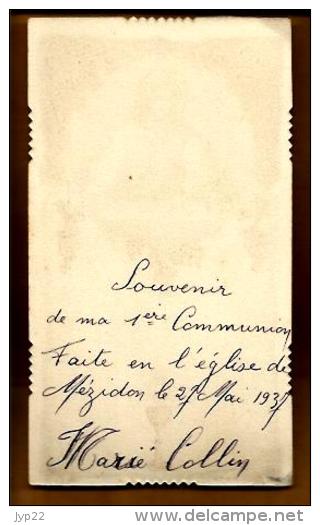 Souvenir
de ma 1ère Communion
Faite en l'église de
Mézidon le 27 Mai 1937
Marie Collin
jyp22
delcampe.net